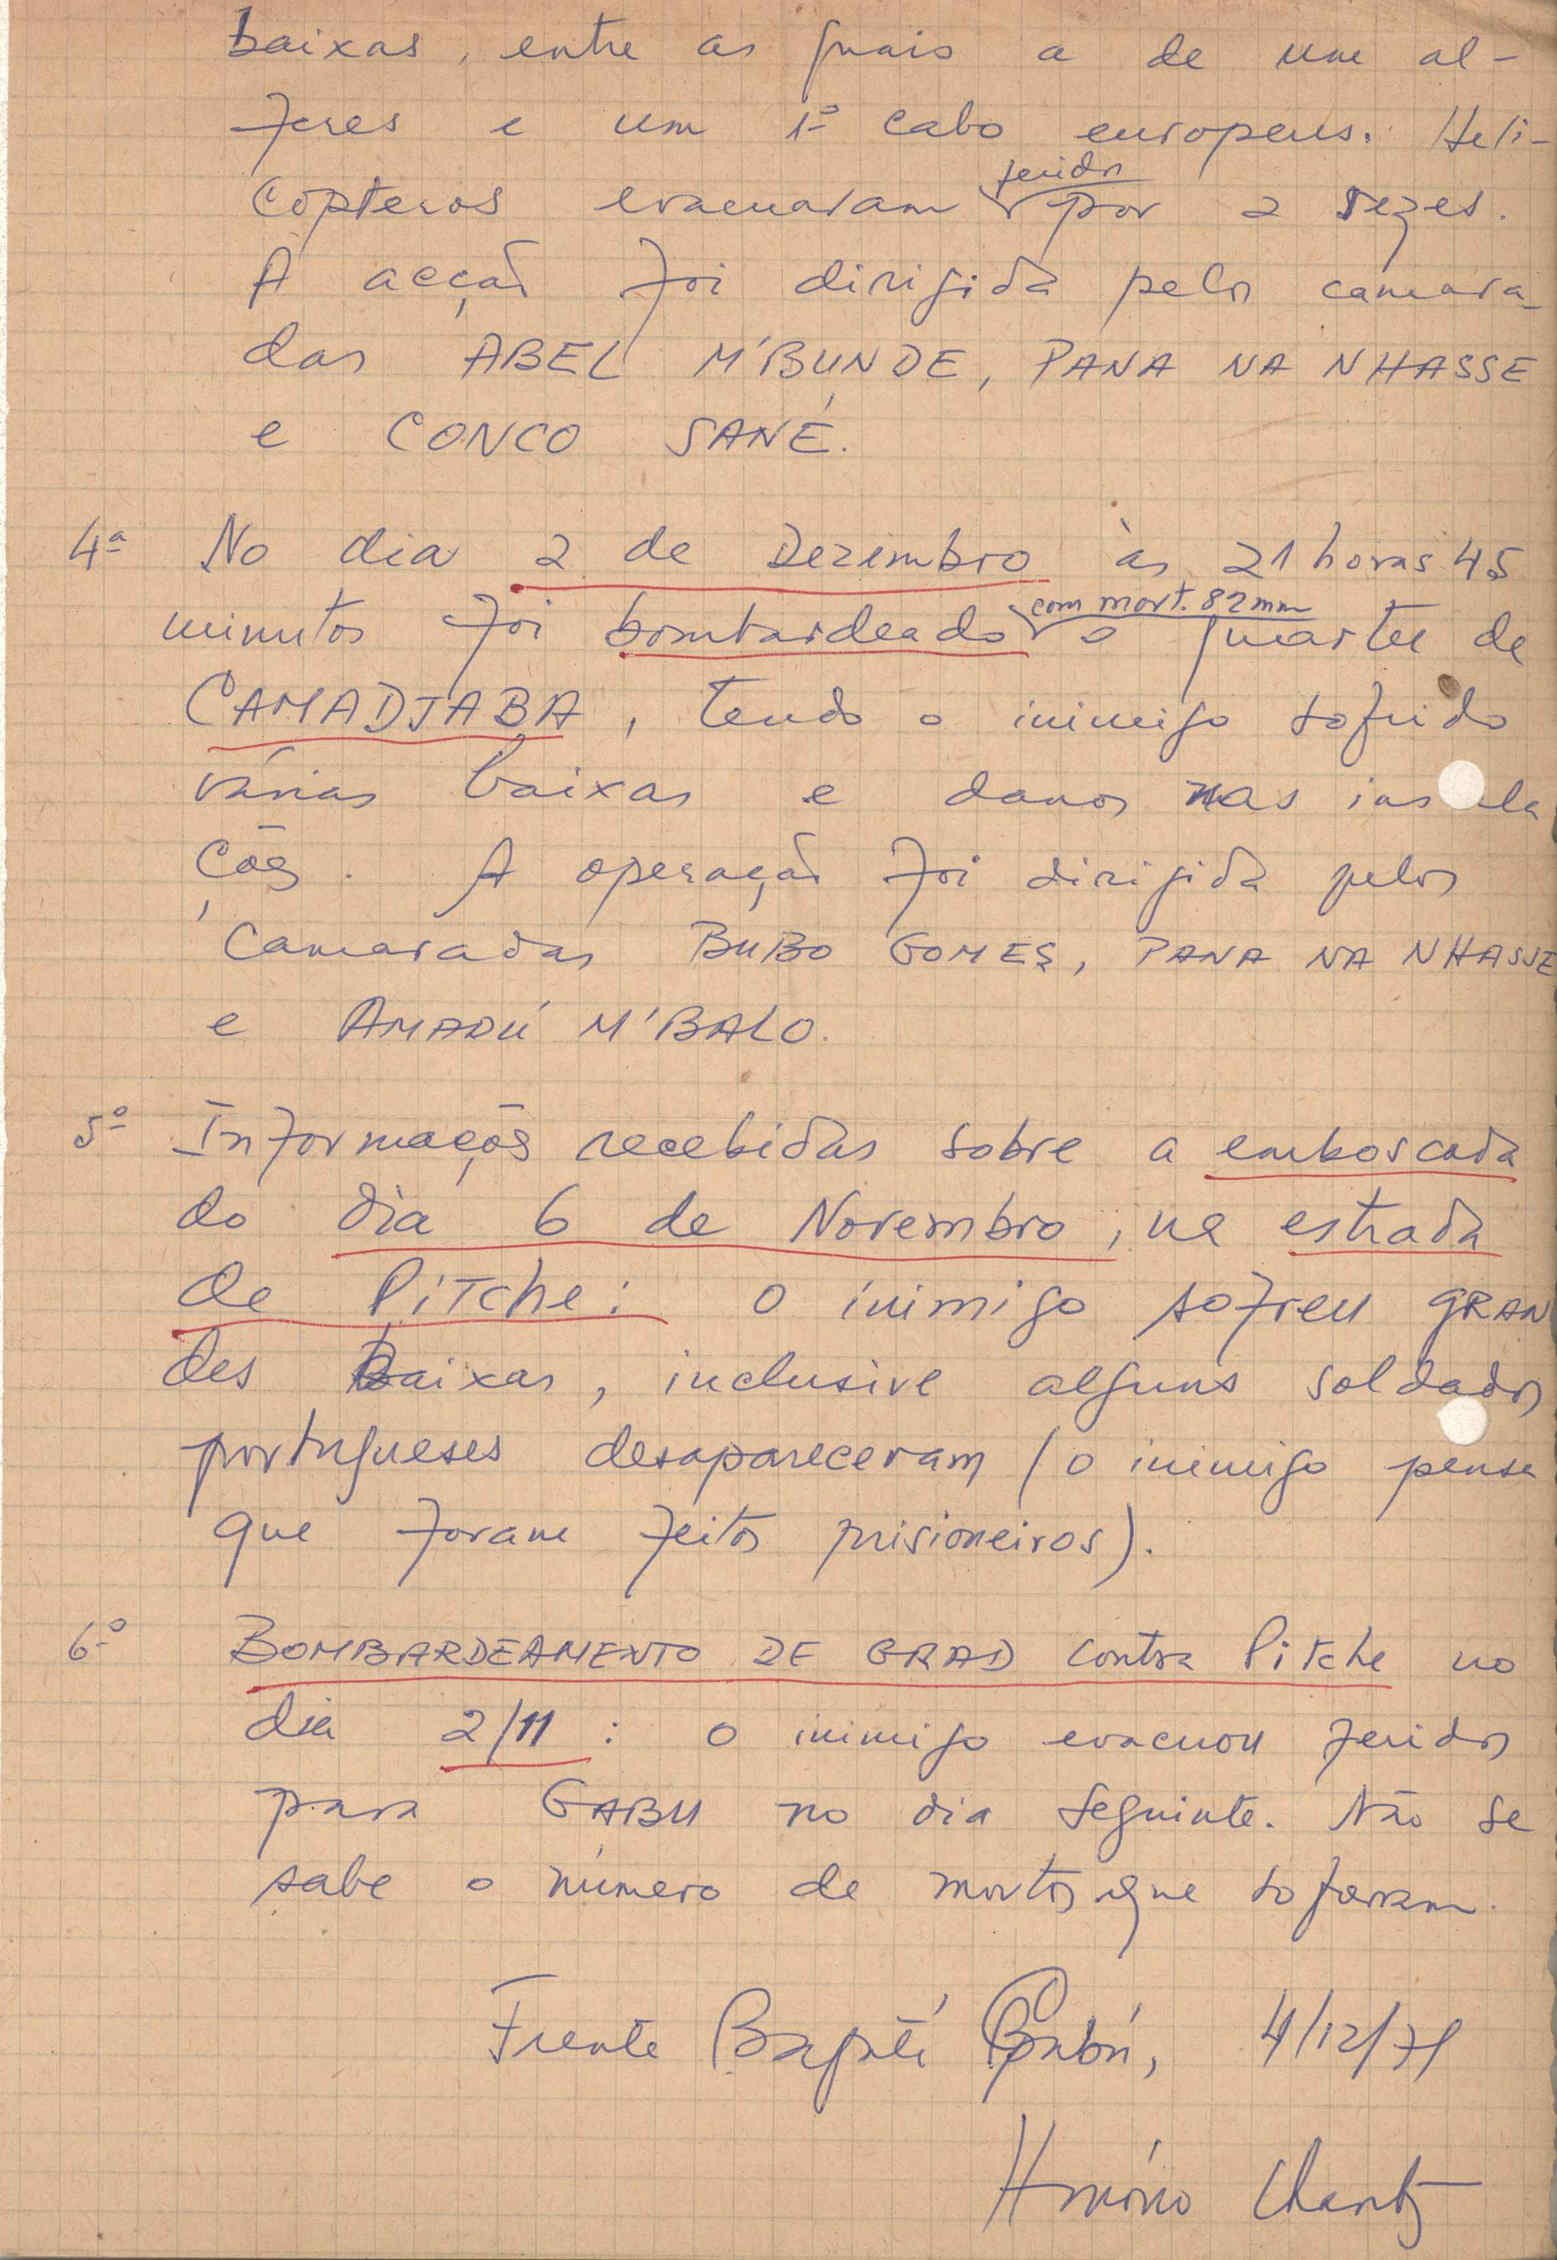 baixas, entre as quais a de um al-
feres e um 1º cabo europeus. Heli-
copteros evacuaram feridos por 2 vezes.
A acção foi dirigida pelos camara-
das ABEL M'BUNDE, PANA NA NHASSE
e CONCO SANÉ.
4ª No dia 2 de Dezembro às 21 horas 45
minutos foi bombardeado com mort. 82 mm o quartel de
CAMADJABA, tendo o inimigo sofrido
várias baixas e danos nas ins ala
ções. A operação foi dirigida pelos
camaradas BUBO GOMES, PANA NA NHASSE
e AMADÚ M'BALO.
5º Informações recebidas sobre a emboscada
do dia 6 de Novembro, na estrada
de Pitche: o inimigo sofreu GRAN
des baixas, inclusive alguns soldados
portugueses desapareceram (o inimigo pensa
que foram feitos prisioneiros).
6º BOMBARDEAMENTO DE GRAD contra Pitche no
dia 2/11: o inimigo evacuou feridos
para GABU no dia seguinte. Não se
sabe o número de mortos que sofreram.
Frente Bafatá Gabú, 4/12/71